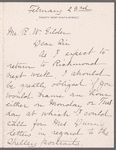 February 28th
Mr. R. W. Gilder
Dear Sir
As I expect to
return to Richmond
next week I should
be greatly obliged if you
would name an hour
either on Monday or Tues
day at which I could
call for Mr.
letters in regard to the
Shelley Portraits